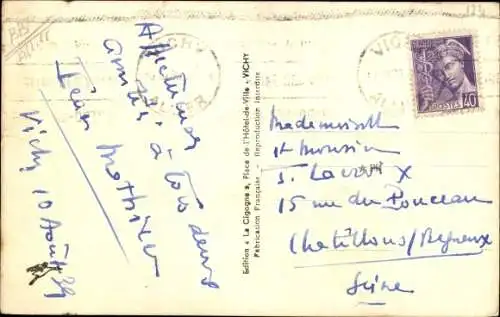 Affectueuses
amitiés à tous deux
Vichy 10 Août 39
Edition « La Cigogne », Place de l'Hôtel-de-Ville - VICHY
Fabrication Française - Reproduction Interdite
VICHY
VICHY
ALLIER
POSTES 40
Mademoiselle
et Monsieur
J. Lacroix
15 rue du Ponceau
Chatillons/Bagneux
Seine